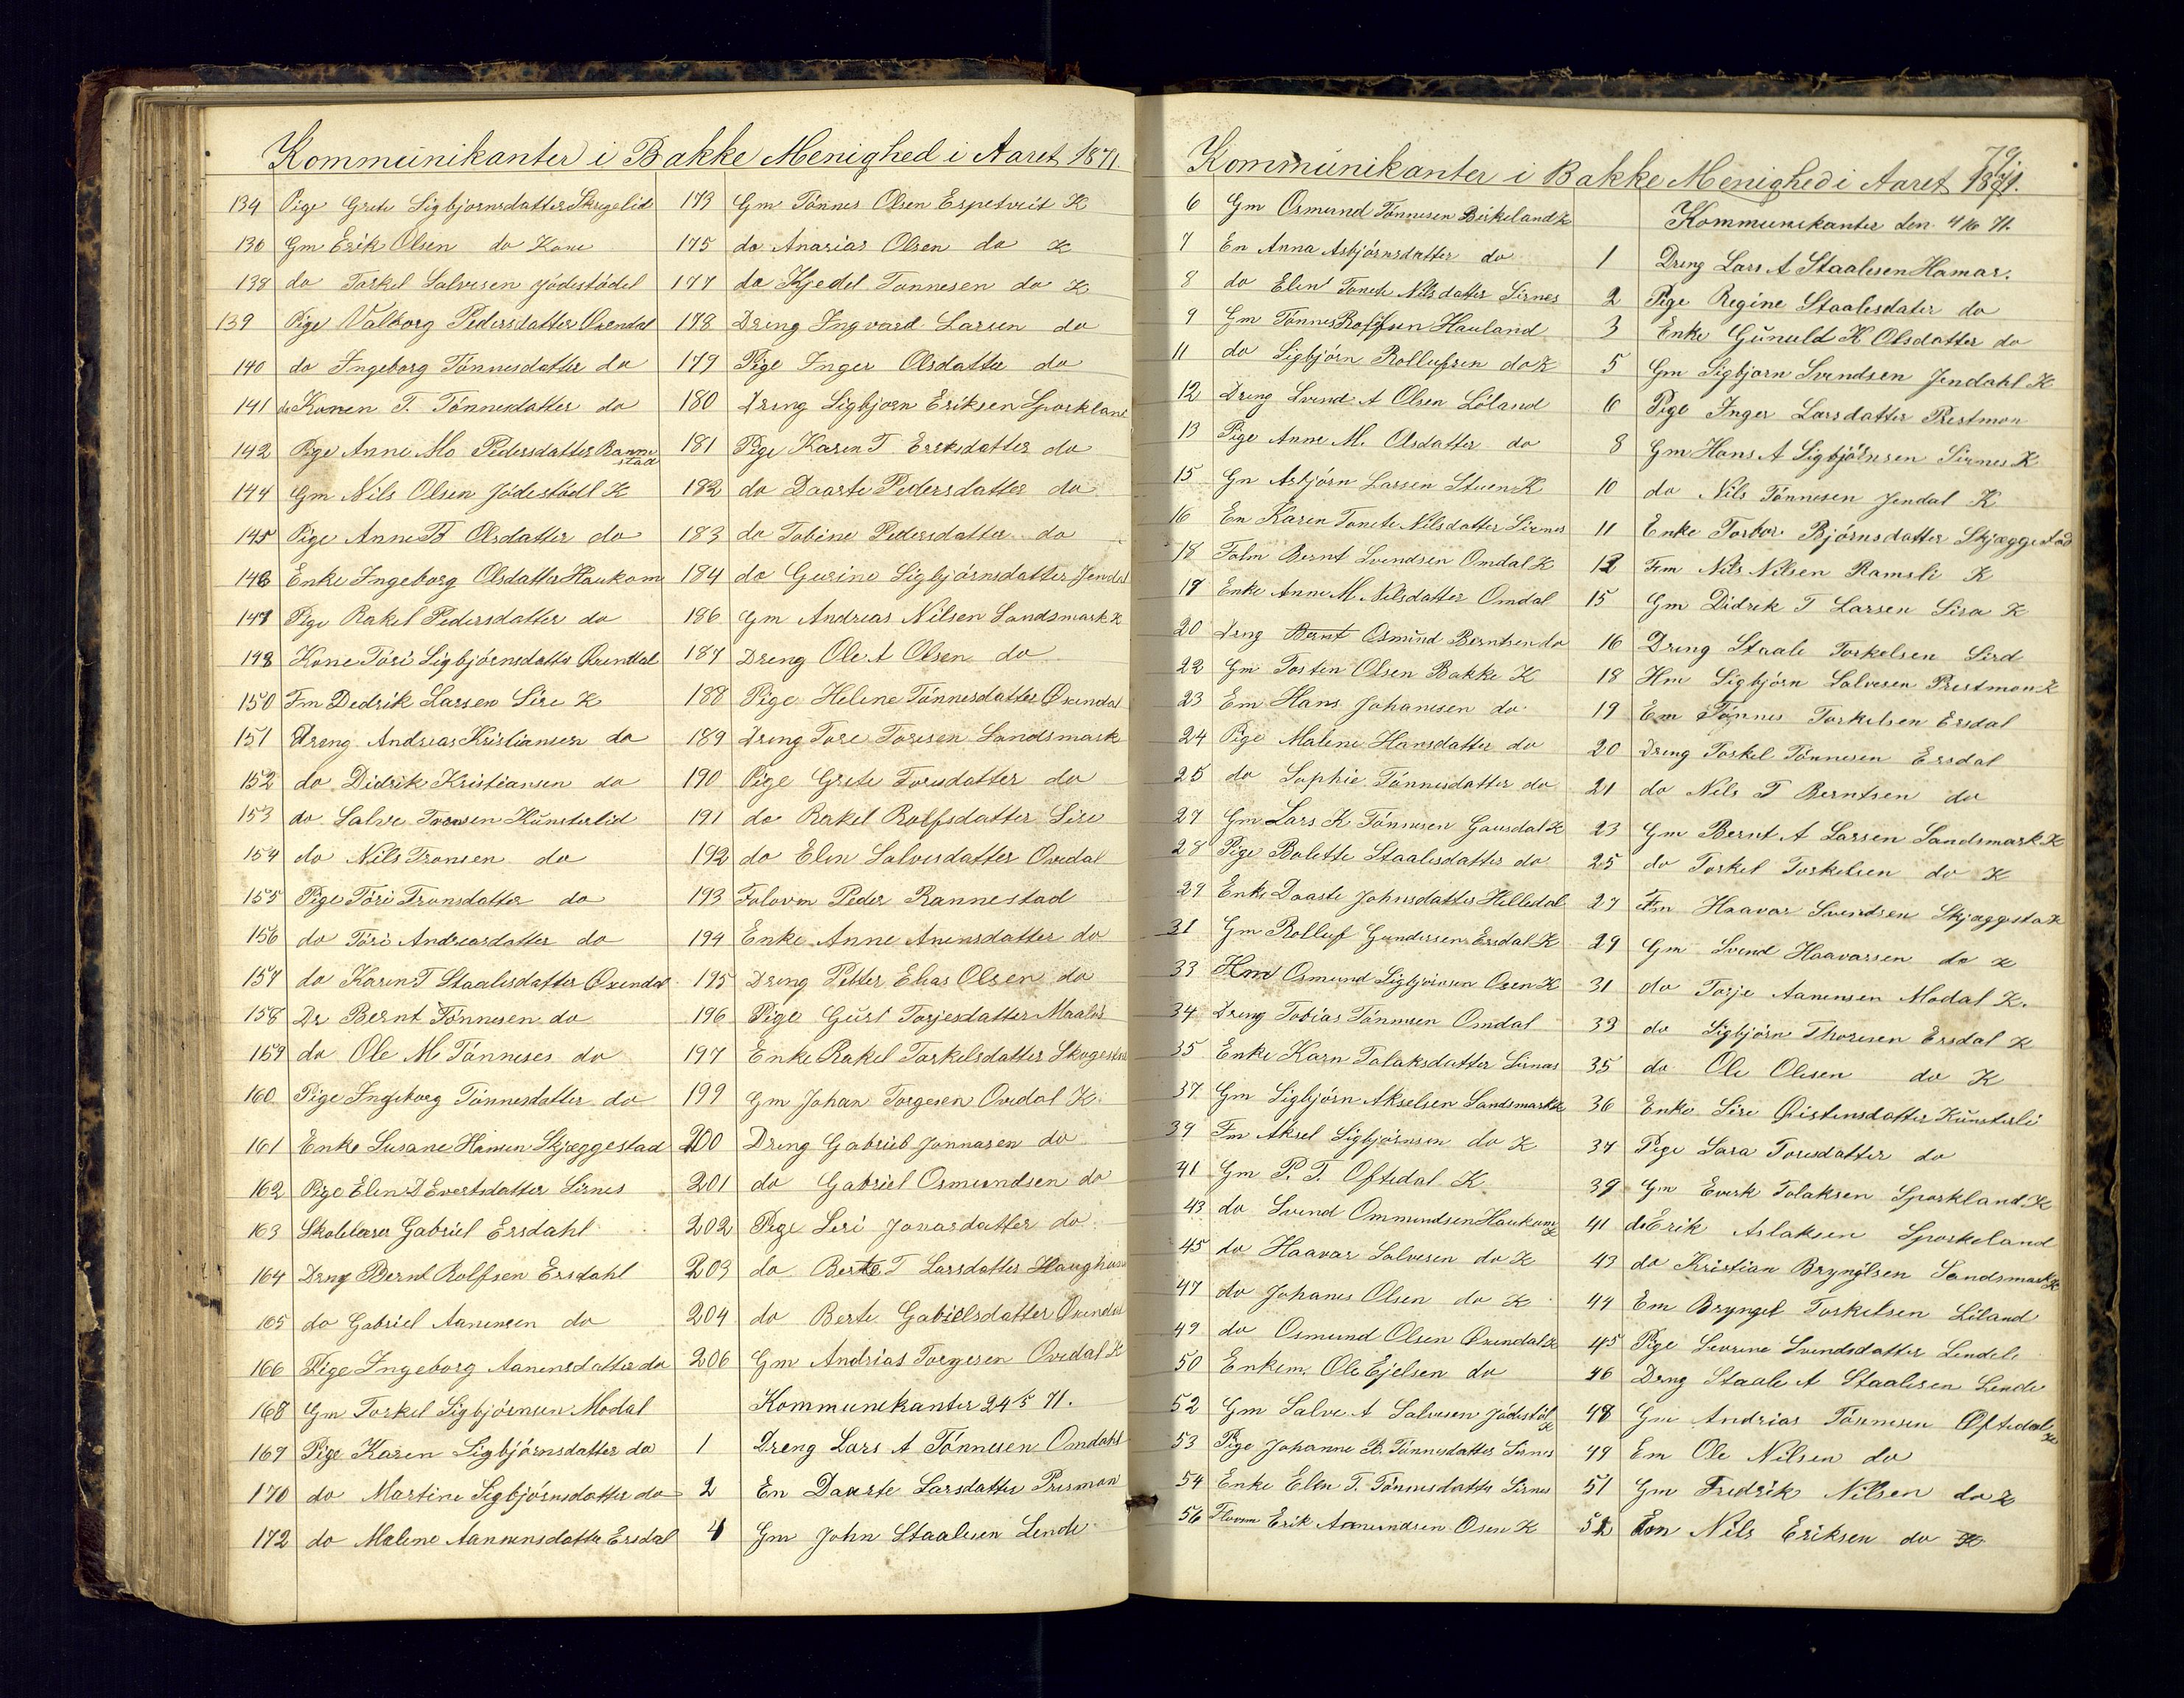 Kommunikanter i Bakke Menighed i Aaret 1871.
134 Pige Grete Sigbjørnsdatter Skregelid
136 Gm Erik Olsen do Kone
138 do Torkel Salvesen Jødestødel
139 Pige Valborg Pedersdatter Øxendal
140 do Ingeborg Tønnesdatter do
141 do Konen T. Tønnesdatter do
142 Pige Anne Mo Pedersdatter Rannestad
144 Gm Nils Olsen Jødestödl K
145 Pige Anne B Olsdatter do
146 Enke Ingeborg Olsdatter Haukom
147 Pige Rakel Pedersdatter do
148 Kone Töri Sigbjörnsdatter Øxendal
150 Fm Dedrik Larsen Sire K
151 Dreng Andreas Kristiansen do
152 do Didrik Kristiansen do
153 do Salve Tronsen Kunsterlid
154 do Nils Tronsen do
155 Pige Töri Tronsdatter do
156 do Töri Andreasdatter do
157 do Karen T Staalesdatter Øxendal
158 Dr Bernt Tönnesen do
159 do Ole M. Tönneses do
160 Pige Ingeborg Tönnesdatter do
161 Enke Susane Hansen Skjæggestad
162 Pige Elen D Evertsdatter Sirnes
163 Skolelærer Gabriel Ersdahl
164 Dreng Bernt Rolfsen Ersdahl
165 do Gabriel Aanensen do
166 Pige Ingeborg Aanensdatter do
168 Gm Torkel Sigbjörnsen Modal
169 Pige Karen Sigbjörnsdatter do
170 do Martine Sigbjörnsdatter do
172 do Malene Aanensdatter Ersdal
173 Gm Tönnes Olsen Espetveit K
175 do Anasias Olsen do K
177 do Kjedel Tonnesen do K
178 Dreng Ingvard Larsen do
179 Pige Inger Olsdatter do
180 Dreng Sigbjorn Eriksen Sporkland
181 Pige Karen T Eriksdatter do
182 do Daarte Pedersdatter do
183 do Tobine Pedersdatter do
184 do Gurine Sigbjörnsdatter Jendal
186 Gm Andreas Nilsen Landsmark K
187 Dreng Ole A Olsen do
188 Pige Helene Tönnesdatter Øxendal
189 Dreng Tore Toresen Landsmark
190 Pige Grete Toresdatter do
191 do Rakel Rolfsdatter Sire
192 do Elen Salvesdatter Ovedal
193 Folovm Peder Rannestad
194 Enke Anne Anensdatter do
195 Dreng Petter Elias Olsen do
196 Pige Guri Torjesdatter
197 Enke Rakel Torkelsdatter
199 Gm Johan Torgesen Ovedal K
200 Dreng Gabrieb Jonnasen do
201 do Gabriel Osmundsen do
202 Pige Seri Jonasdatter do
203 do Berte T Larsdatter
204 do Berte Gabielsdatter Øxendal
206 Gm Andrias Torgesen Ovedal K
Kommunikanter 24/5 71.
1 Dreng Lars A Tönnesen Omdahl
2 En Daarte Larsdatter Presmon
4 Gm John Staalesen Lende
79
Kommunikanter i Bakke Menighed i Aaret 1871.
6 Gm Osmund Tönnesen Birkeland K
7 En Anna Asbjörnsdatter do
8 do Elen Tonete Nilsdatter Sirnes
9 Gm Tönnes Rolfsen Hauland
11 do Sigbjörn Rollufsen do K
12 Dreng Svend A Olsen Löland
13 Pige Anne M. Olsdatter do
15 Gm Asbjörn Larsen Stuen K
16 En Karen Tonete Nilsdatter Sirnes
18 Folm Bernt Svendsen Omdal K
19 Enke Anne M. Nilsdatter Omdal
20 Dreng Bernt Osmund Berntsen do
22 Gm Tosten Olsen Bakke K
23 Em Hans Johanesen do
24 Pige Malene Hansdatter do
25 do Sophie Tönnesdatter do
27 Gm Lars K Tönnesen Gausdal K
28 Pige Bolette Staalesdatter do
29 Enke Daarte Johnsdatter Helledal
31 Gm Rolluf Gundersen Ersdal K
33 Hm Osmund Sigbjörnsen Osen K
34 Dreng Tobias Tönnesen Omdal
35 Enke Karn Tolaksdatter Sirnes
37 Gm Sigbjörn Akselsen Landsmark K
39 Fm Aksel Sigbjörnsen do K
41 Gm P. T. Oftedal K
43 do Svend Ommundsen Haukom K
45 do Haavar Salvesen do K
47 do Johanes Olsen do K
49 do Osmund Olsen Øxendal K
50 Enkem. Ole Ejelsen do
52 Gm Salve A Salvesen Jödestöl K
53 Pige Johanne B. Tönnesdatter Sirnes
54 Enke Elen T. Tönnesdatter Sirnes
56 Flovm Erik Aanundsen Osen K
Kommunikanter den 4/6 71.
1 Dreng Lars A Staalesen Hamar.
2 Pige Regine Staalesdater do
3 Enke Gunuld K Olsdatter do
5 Gm Sigbjorn Svendsen Jendahl K
6 Pige Inger Larsdatter Prestmon
8 Gm Hans A Sigbjörnsen Sirnes K
10 do Nils Tönnesen Jendal K
11 Enke Torbor Björnsdatter Skjæggestad
12 Fm Nils Nilsen Ramsli K
15 Gm Didrik T Larsen Sira K
16 Dreng Staale Torkelsen Sird
18 Hm Sigbjörn Salvesen Prestmon K
19 Em Tönnes Torkelsen Ersdal
20 Dreng Torkel Tönnesen Ersdal
21 do Nils T Berntsen do
23 Gm Bernt A Larsen Landsmark K
25 do Torkel Torkelsen do K
27 Fm Haavar Svendsen Skjæggesta K
29 Gm Svend Haavarsen do K
31 do Torje Aanensen Modal K.
33 do Sigbjörn Thoresen Ersdal K
35 do Ole Olesen do K
36 Enke Siri Øistensdatter Kunsterli
37 Pige Sara Toresdatter do
39 Gm Everk Tolaksen Sporkland K
41 do Erik Aslaksen Sporkeland
43 do Kristian Bryngelsen Landsmark K
44 Em Brynget Torkelsen Liland
45 Pige Severine Svendsdatter Lendele
46 Dreng Staale A Staalesen Lende
48 Gm Andrias Tönnesen Oftedal K
49 Em Ole Nilsen do
51 Gm Fredrik Nilsen do K
52 Em Nils Eriksen do K